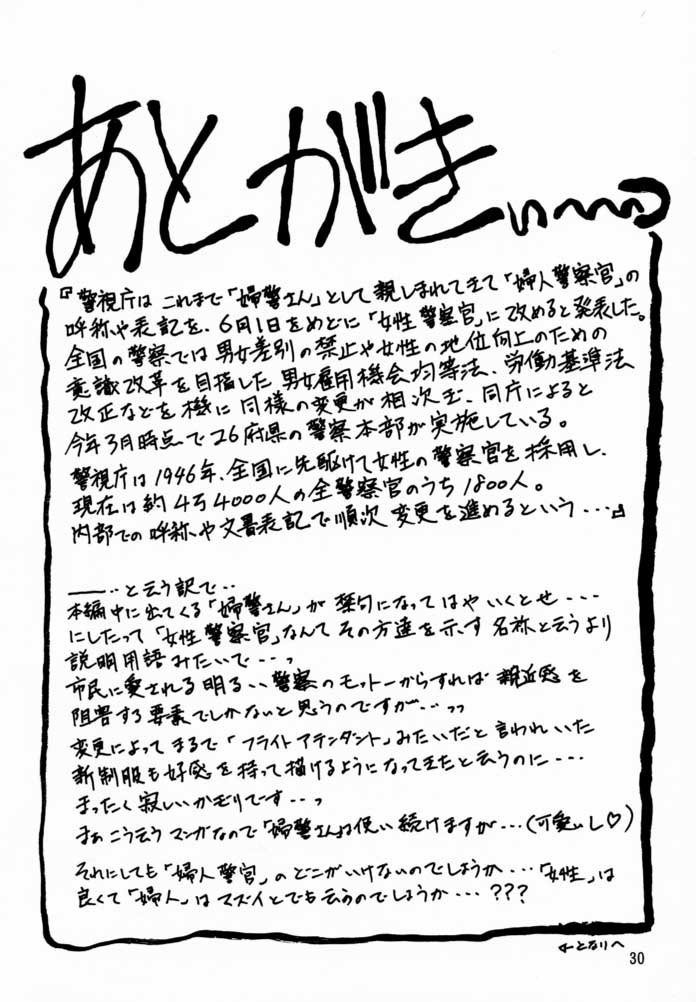 あとがきぃ〜〜
『警視庁は これまで「婦警さん」として親しまれてきて「婦人警察官」の
呼称や表記を、6月1日をめどに「女性警察官」に改めると発表した。
全国の警察では男女差別の禁止や女性の地位向上のための
意識改革を目指した男女雇用機会均等法、労働基準法
改正などを機に同様の変更が相次ぎ、同庁によると
今年3月時点で26府県の警察本部が実施している。
警視庁は1946年、全国に先駆けて女性の警察官を採用し、
現在は約4万4000人の全警察官のうち1800人。
内部での呼称や文書表記で順次変更を進めるという・・・』
――‥と云う訳で‥
本編中に出てくる「婦警さん」が禁句になってはやいくとせ・・・
にしたって「女性警察官」なんてその方達を示す名称と云うより
説明用語みたいで・・・っ
市民に愛される明るい警察のモットーからすれば親近感を
阻害する要素でしかないと思うのですが・・・っっ
変更によってまるで「フライトアテンダント」みたいだと言われいた
新制服も好感を持って描けるようになってきたと云うのに・・・
まったく寂しいかぎりです・・・っ
まぁこう云うマンガなので「婦警さん」は使い続けますが・・・(可愛いし♡)
それにしても「婦人警官」のどこがいけないのでしょうか・・・「女性」は
良くて「婦人」はマズイとでも云うのでしょうか・・・???
←となりへ
30